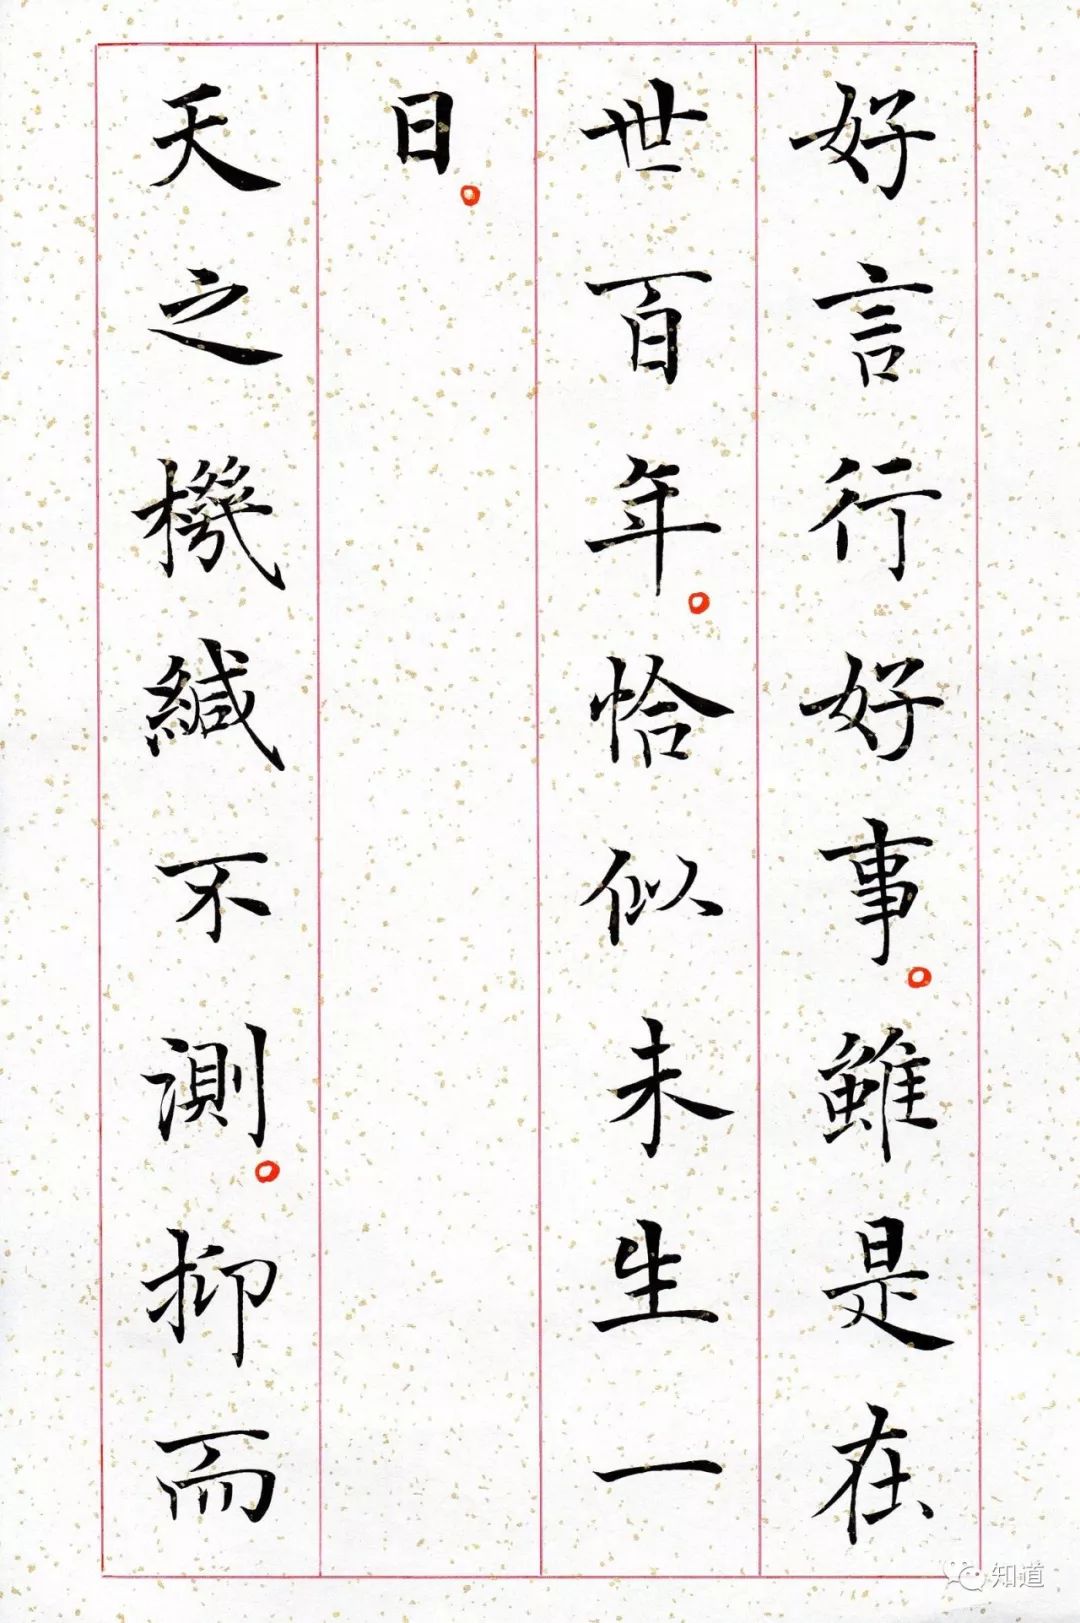 好言行好事。雖是在
世百年。恰似未生一
日。
天之機緘不測。抑而
知道